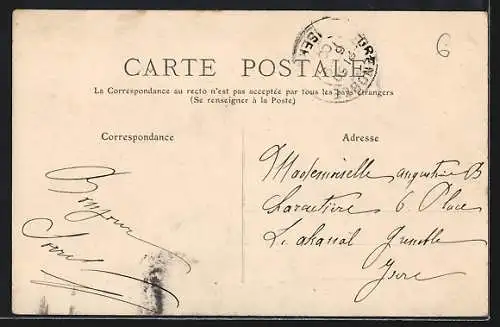 6
GRENOBLE
ISERE
CARTE POSTALE
La Correspondance au recto n'est pas acceptée par tous les pays étrangers
(Se renseigner à la Poste)
Correspondance
Adresse
Bonjour
Mademoiselle Augustine B
6 Place
Lakanal Grenoble
Isère